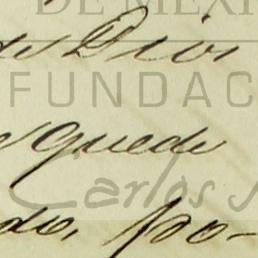 DE MÉXIC
de Dios
FUNDAC
quede
Carlos
do, po-